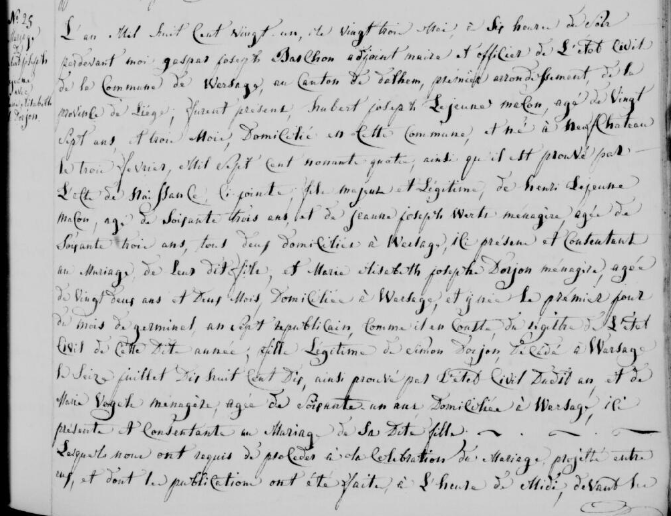 N: 25
L'an Mil huit Cent vingt un, le vingt trois Mai, à Six heure de Soir
pardevant moi gaspar joseph adjoint maire et officier de L'état Civil
de la Commune de Warsage, au Canton de dalhem, premier arrondissement, de la
province de Liége, furent present, hubert joseph Lejeune maçon, agé de Vingt
Sept ans, et trois Mois, Domicilié en Cette Commune, et né à Neufchateau
le trois fevrier, Mil Sept Cent nonante quatre, ainsi qu'il est prouvé par
L'acte de Naissance Ci-jointe, fils majeur et Légitime, de henri Lejeune
maçon, agé de Soixante trois ans, et de jeanne joseph ménagère, agée de
Soixante trois ans, tous deux domiciliée à Warsage, ici présens et Contentant
au Mariage, de Leur dit fils, et Marie Elisabeth joseph Dorjon ménagère, agée
de Vingt deux ans et Deux Mois, Domiciliée à Warsage, et née Le premier jour
de mois de germinal, an Sept republicain, Comme il en Conste du régistre de L'état
Civil de Cette Dite année, fille Légitime de Simon Dorjon, Décédé à Warsage
le Seize juillet Dix huit Cent Dix, ainsi prouvé par L'état Civil Dudit an, et de
Marie ménagère, agée de Soixante un ans Domiciliée à Warsage, ici
présente et Consentante au Mariage de Sa Dite fille.
Lesquels nous ont requis de procéder à la Célébration du Mariage, projetté entre
eux, et dont les publications ont été faite, à L'heure de Midi, devant la